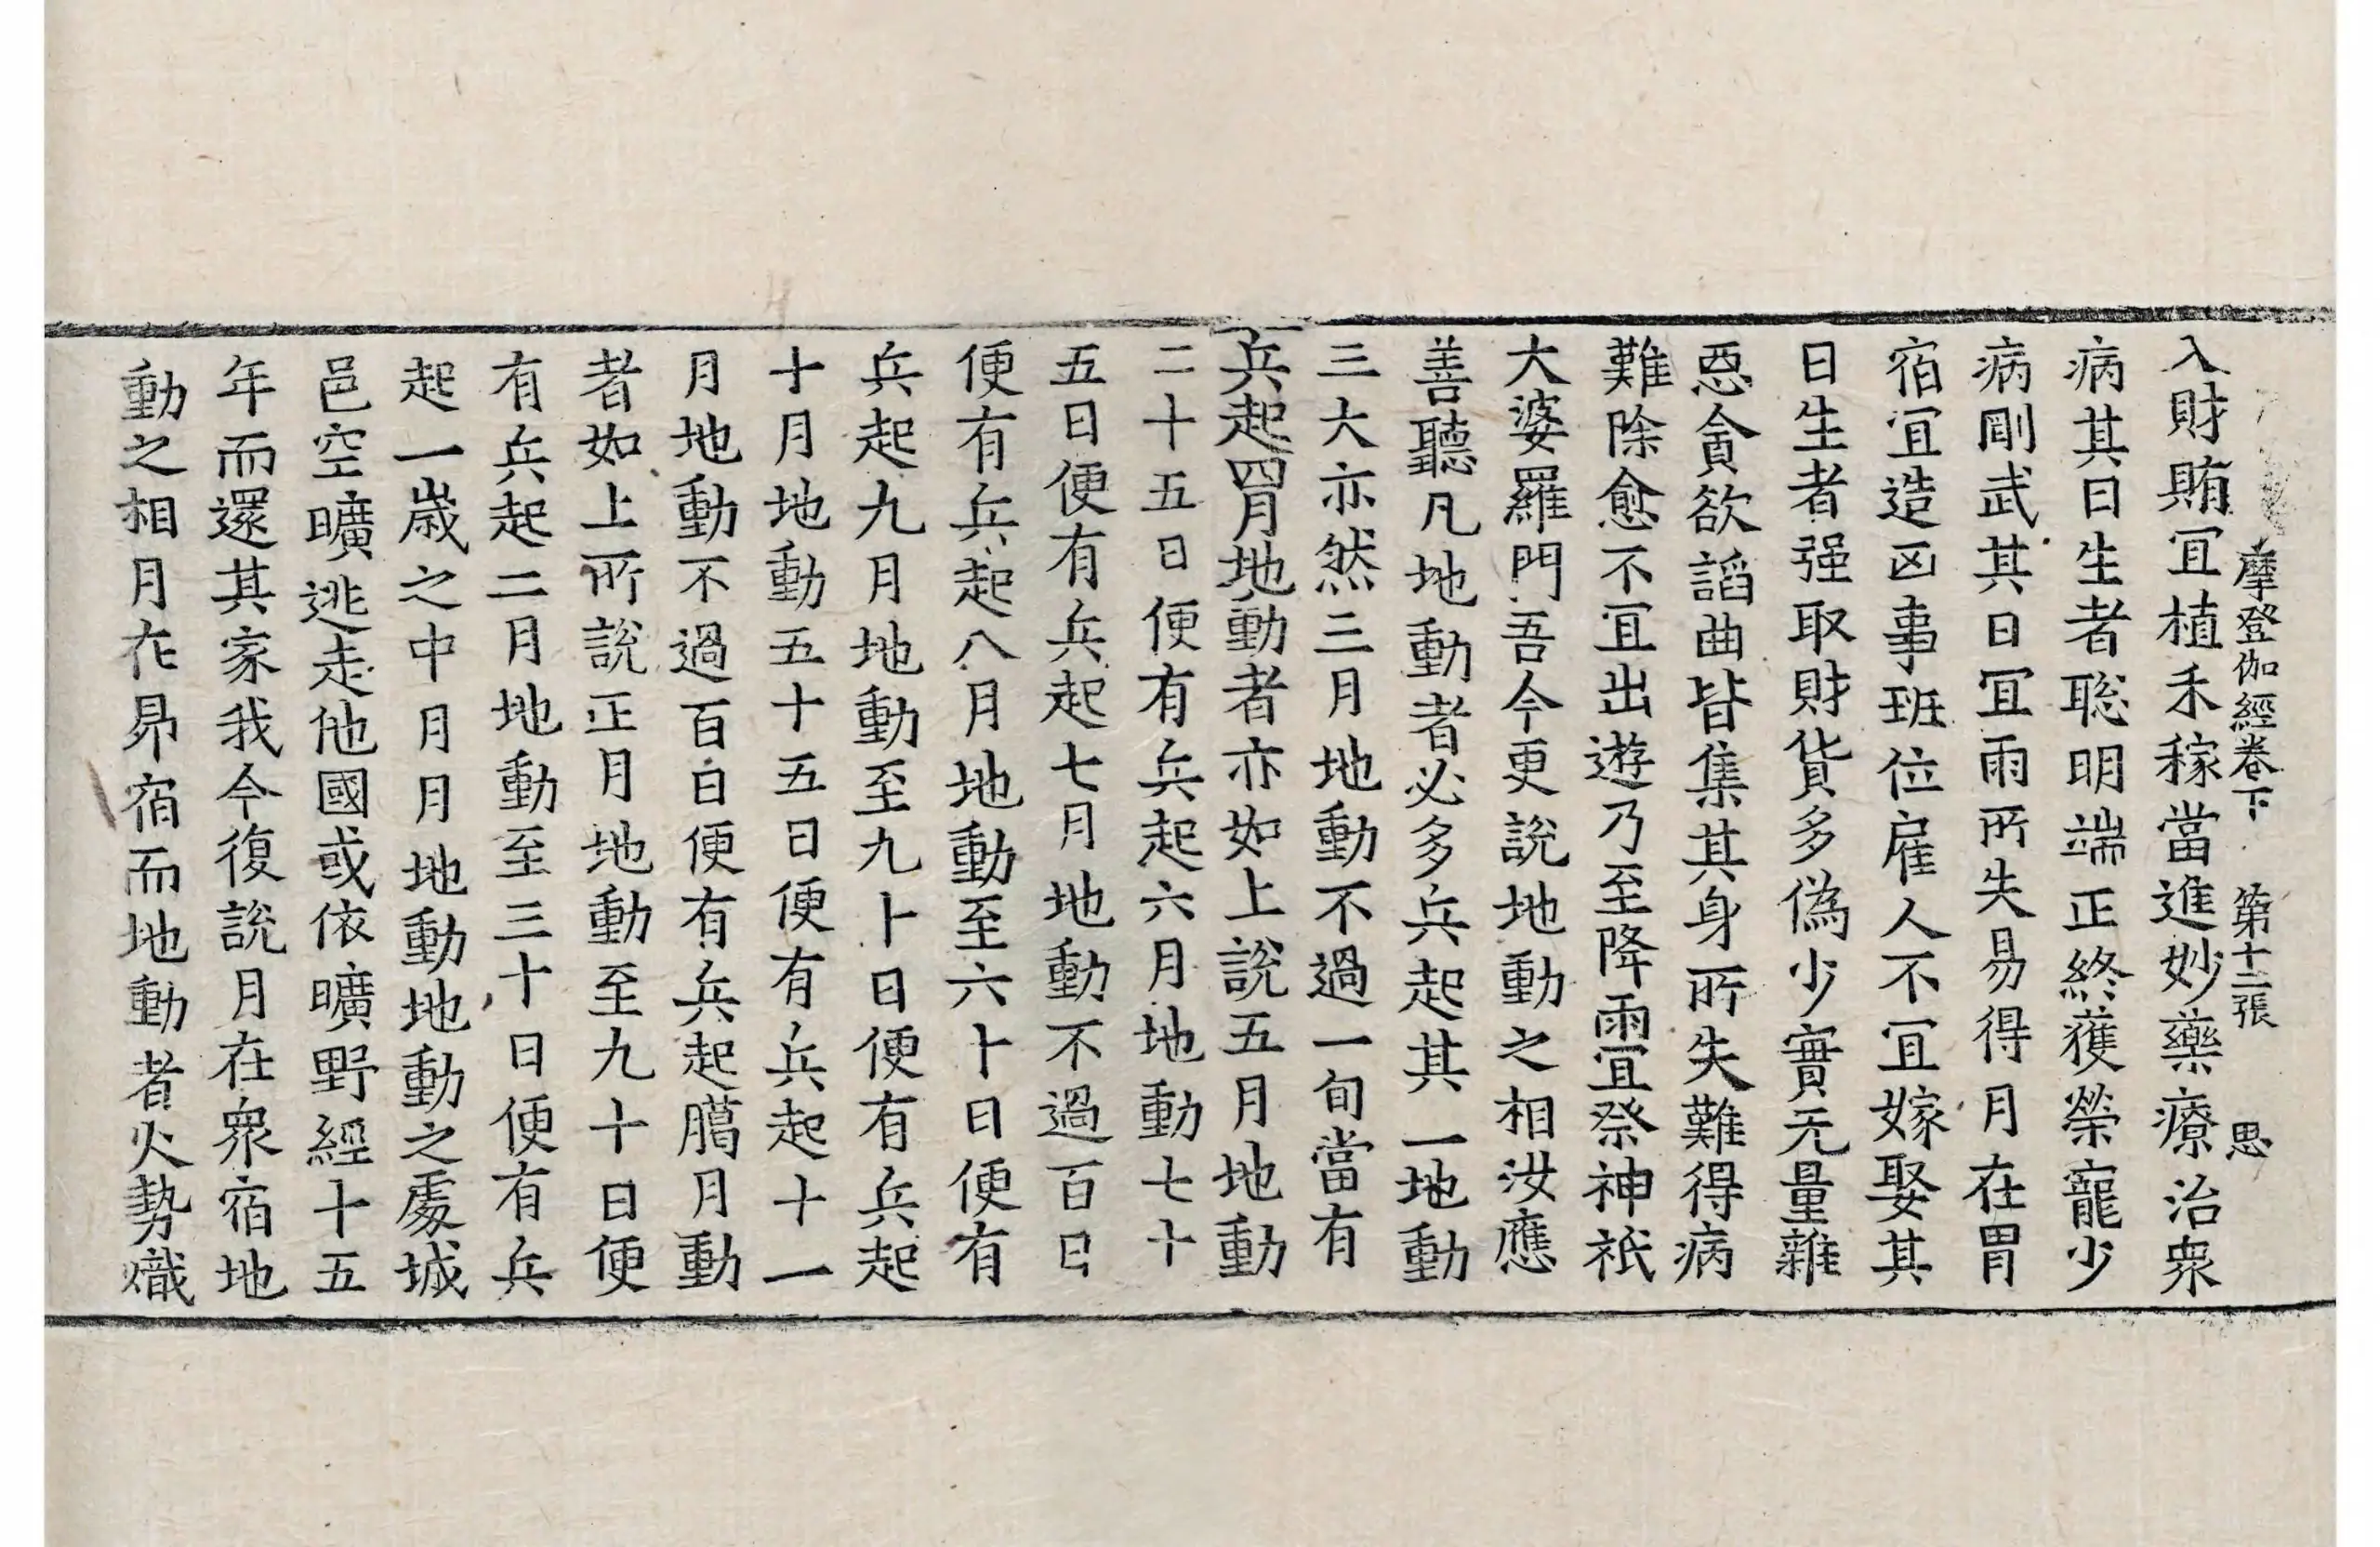 摩登伽經卷下　第十二張　思
入財賄冝植禾稼當進妙藥療治衆
病其日生者聡明端正終獲榮寵少
病剛武其日冝雨所失易得月在胃
宿冝造凶事班位雇人不冝嫁娶其
日生者强取財貨多偽少實无量雜
惡貪欲謟曲皆集其身所失難得病
難除愈不冝出遊乃至降雨冝祭神祇
大婆羅門吾今更說地動之相汝應
善聽凡地動者必多兵起其一地動
三大亦然三月地動不過一旬當有
兵起四月地動者亦如上說五月地動
二十五日便有兵起六月地動七十
五日便有兵起七月地動不過百日
便有兵起八月地動至六十日便有
兵起九月地動至九十日便有兵起
十月地動五十五日便有兵起十一
月地動不過百日便有兵起臈月動
者如上所說正月地動至九十日便
有兵起二月地動至三十日便有兵
起一歲之中月月地動地動之處城
邑空曠逃走他國或依曠野經十五
年而還其家我今復說月在衆宿地
動之相月在昴宿而地動者火勢熾